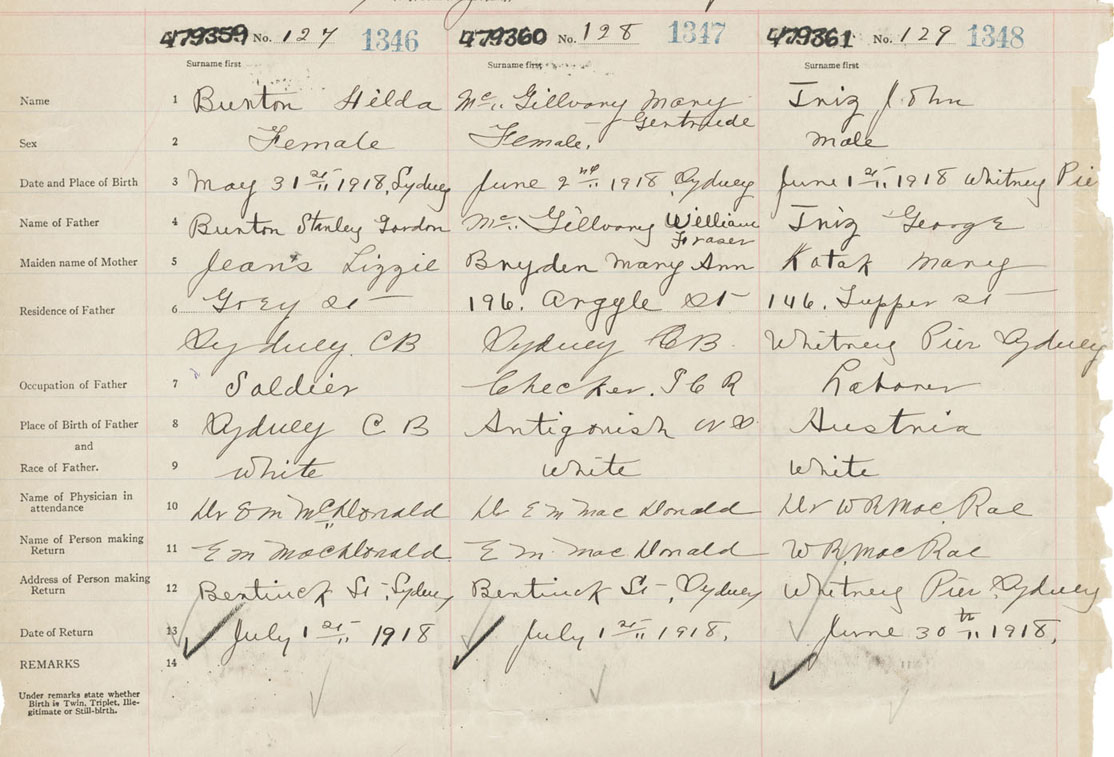 479359 No. 127 1346 479360 No. 128 1347 479361 No. 129 1348
Surname first Surname first Surname first
Name 1 Burton Hilda Mc Gillvary Mary Iniz John
Gertrude
Sex 2 Female Female. Male
Date and Place of Birth 3 May 31st 1918, Sydney June 2nd 1918 Sydney June 1st 1918 Whitney Pier
Name of Father 4 Burton Stanley Gordon Mc Gillvary William Iniz George
Fraser
Maiden name of Mother 5 Jeans Lizzie Bryden Mary Ann Kotak Mary
Residence of Father 6 Grey St 196. Argyle St 146. Tupper St
Sydney CB Sydney CB. Whitney Pier Sydney
Occupation of Father 7 Soldier Checker. I C R Laborer
Place of Birth of Father 8 Sydney C B Antigonish N S. Austria
and
Race of Father. 9 White White White
Name of Physician in
attendance 10 Dr E M McDonald Dr E M Mac Donald Dr W R Mac Rae
Name of Person making
Return 11 E M MacDonald E M. Mac Donald W R. Mac Rae
Address of Person making
Return 12 Bentinck St, Sydney Bentinck St, Sydney Whitney Pier Sydney
Date of Return 13 July 1st 1918 July 1st 1918. June 30th 1918.
REMARKS 14
Under remarks state whether
Birth is Twin, Triplet, Ille-
gitimate or Still-birth.